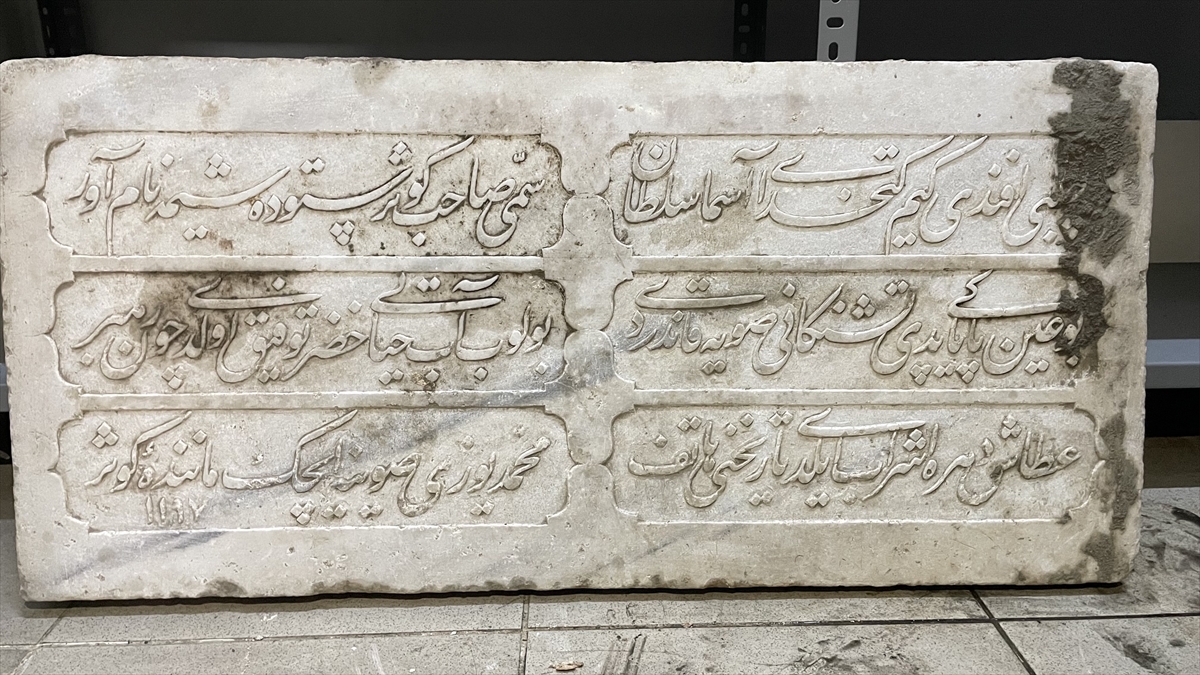 افندی کیم کتخدای اسما سلطان
سمی صاحب کوثر ستوده شیمه نام آور
بو عین پاکی یاپدی تشنکانی صویه قاندردی
بولوب آب حیاتی خضر توفیق اولدی چون رهبر
عطاش دهره اشراب ایلدی تاریخنی هاتف
محمد یوزی صوینه ایچک مانندهٔ کوثر
١١٩٧